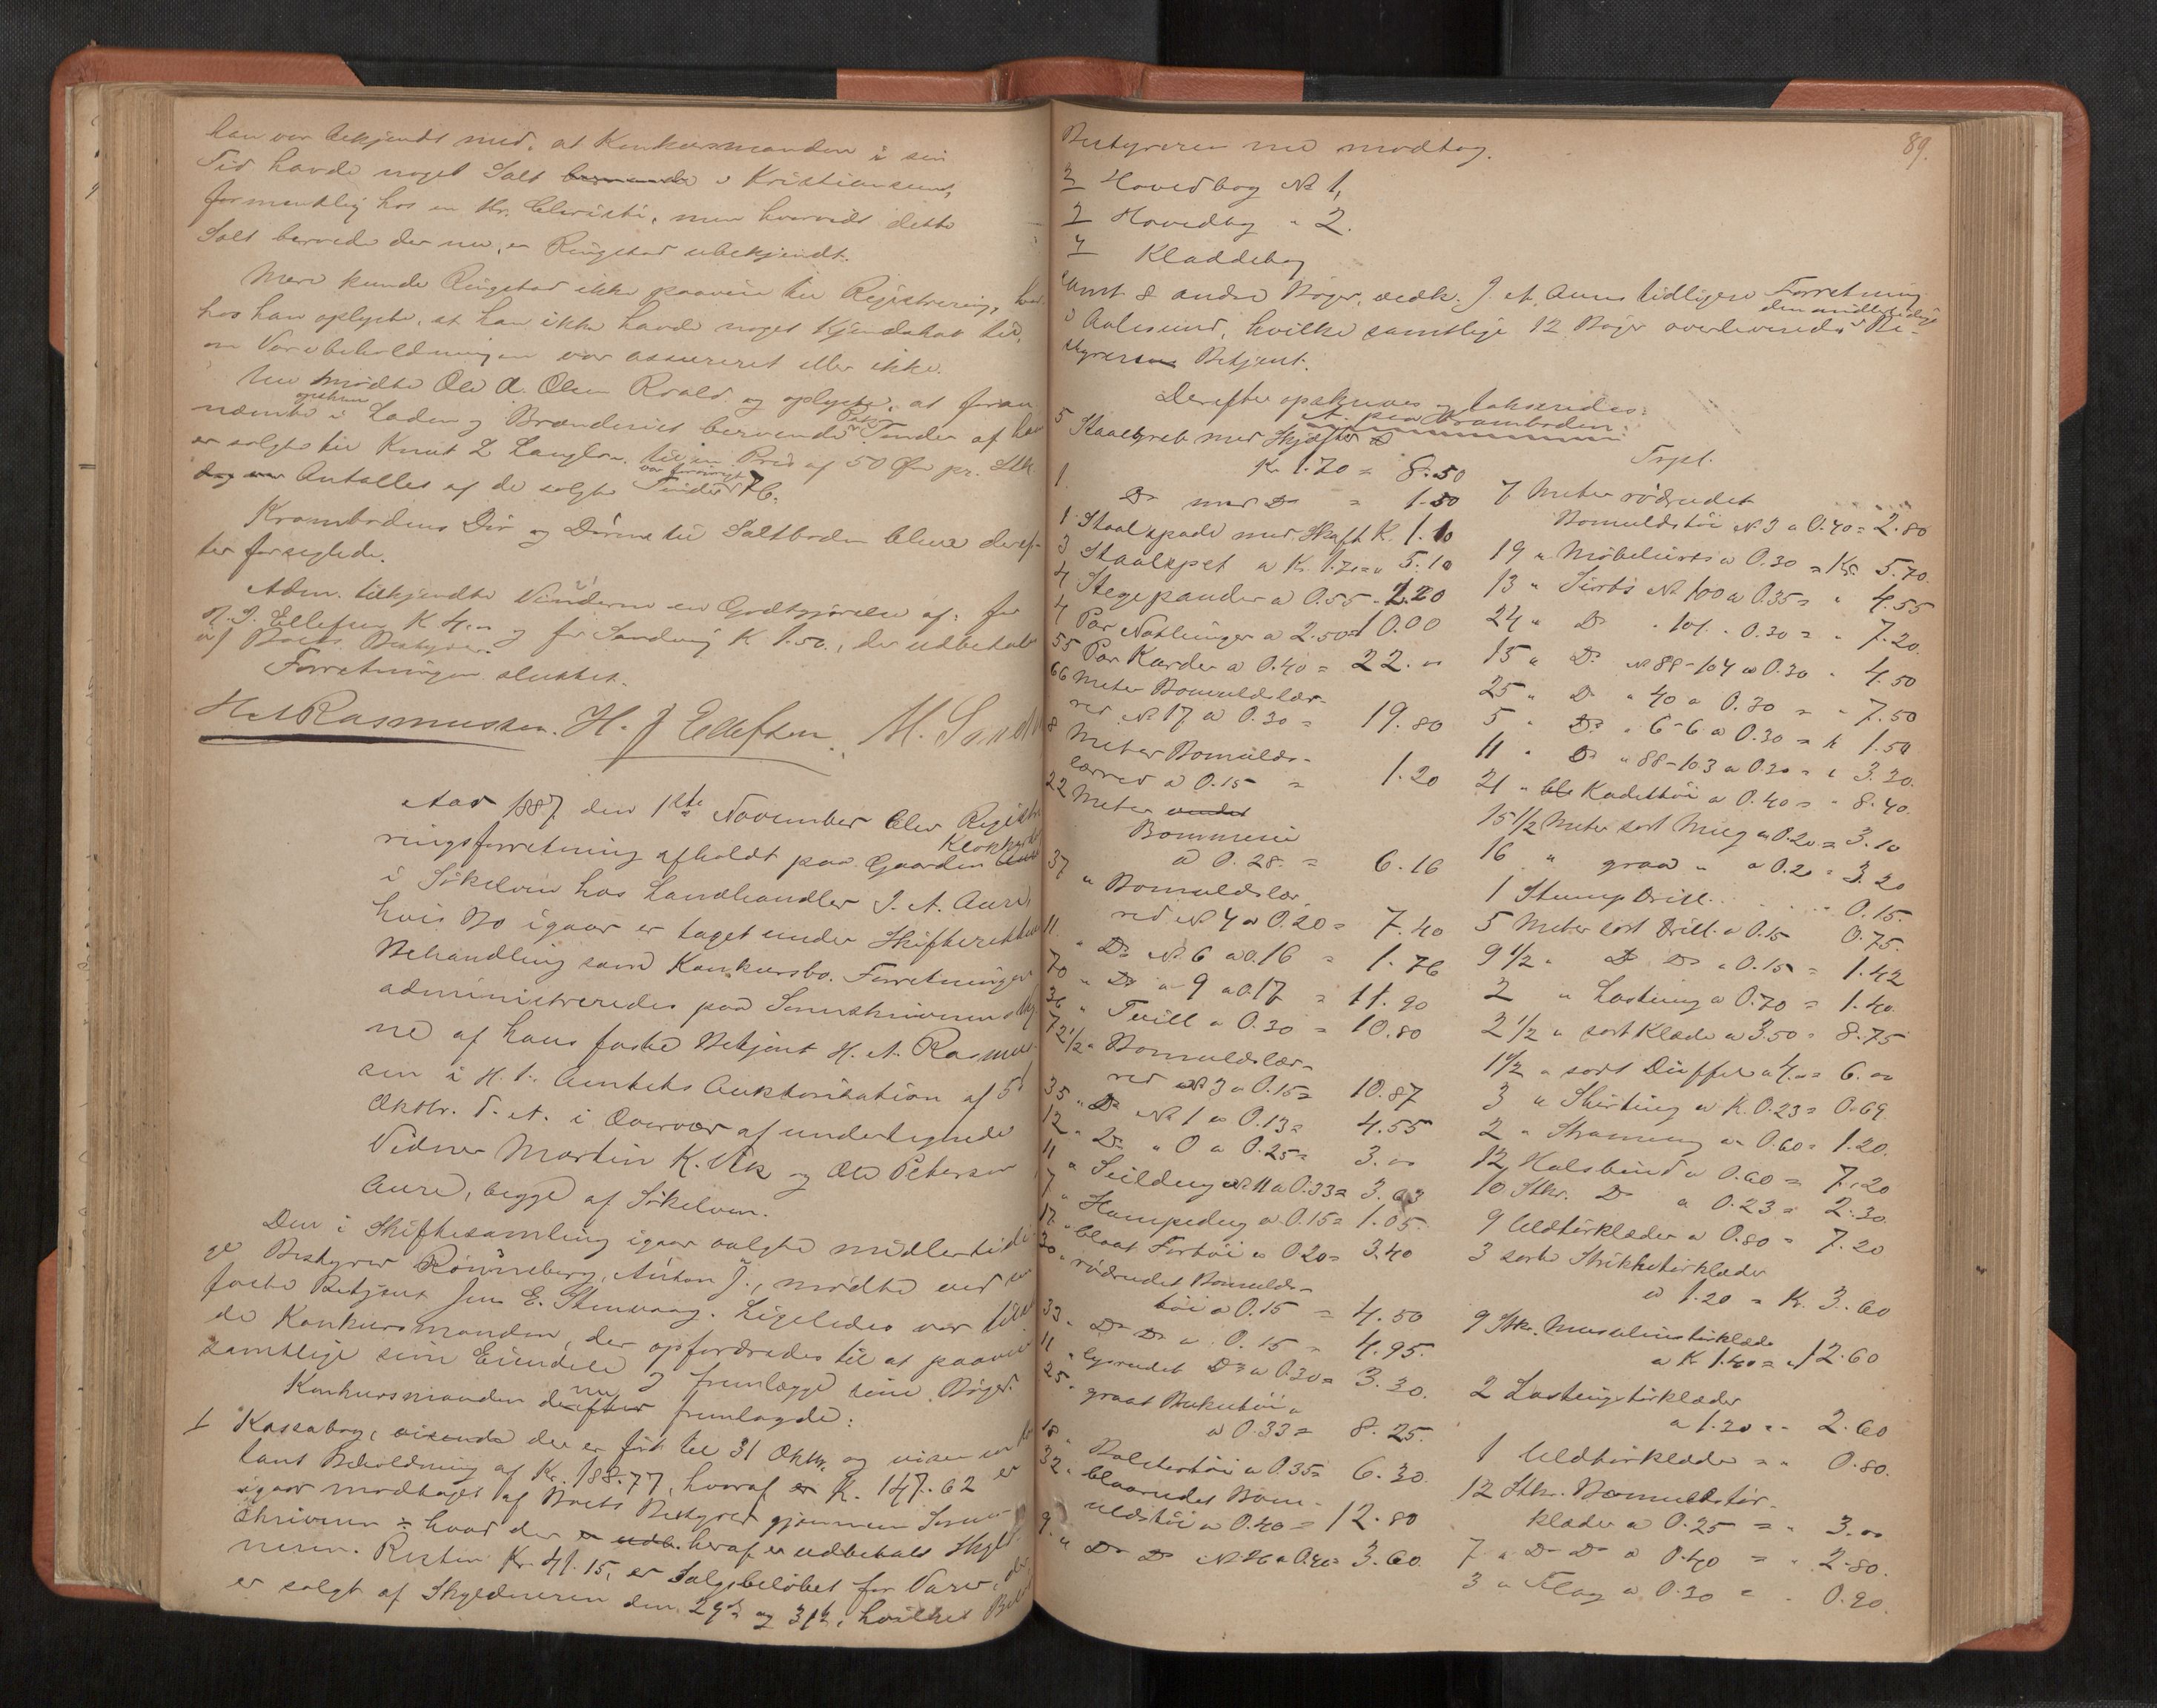 han var bekjendt med, at Konkursmanden i sin
Tid havde noget Salt beroende i Kristiansund,
formentlig hos en Hr. Christi, men hvorvidt dette
Salt beroede der nu, er Ringstad ubekjendt.
Mere kunde Ringstad ikke paavise til Registrering,
hos han oplyste, at han ikke havde noget Kjendskab til,
om Varebeholdningen var assureret eller ikke.
Nu mødte Ole A. Olsen Roald og oplyste, at foran
nævnte i Laden og Brænderiet beroende Tønder af ham
er solgte til Knut L Langlo. til en Pris af 50 Øre pr. Stk.
dog var Antallet af de solgte Tønder var forøvrigt 76.
Krambodens Dør og Dørene til Saltboden bleve deref-
ter forseglede.
Adm. tilkjendte Vidnerne en Godtgjørelse af: for
H. J. Ellefsen K. 4.00 og for Sandvig K 1.50., der udbetales
af Boets Bestyrer.
Forretningen sluttet.
H. A. Rasmussen. H. J Ellefsen. M. Sand
Aar 1887 den 1ste November blev Registre-
ringsforretning afholdt paa Gaarden Aure
i Søkelven hos Landhandler J. A. Aure,
hvis Bo igaar er taget under Skifterettens
Behandling som Konkursbo. Forretningen
administreredes paa Sorenskriverens Veg-
ne af hans faste Betjent H. A. Rasmus-
sen i H. t. Amtets Auktorisation af 5te
Oktbr. d. A. i Overvær af undertegnede
Vidner Martin K. Vik og Ole Petersen
Aure, begge af Søkelven.
Den i Skiftesamling igaar valgte midlertidi-
ge Bestyrer Rønneberg, Anton J., mødte ved sin
faste Betjent Jens E. Stenvaag. Ligeledes var tilste-
de Konkursmanden, der opfordredes til at paavise
samtlige sine Eiendele og fremlægge sine Bøger.
Konkursmanden derefter nu fremlagde:
1 Kassabog, visende der er ført til 31 Oktbr. og viser en Kon-
tant Beholdning af Kr. 188.77, hvoraf er K. 147.62 er
igaar modtaget af Boets Bestyrer gjennem Soren-
skriveren hvad der er udb. heraf er udbetalt Skyld-
neren. Resten Kr. 41.15, er Salgsbeløbet for Varer, der
er solgt af Skyldneren den 29de og 31te, hvilket Beløb
89.
Bestyreren nu modtog.
2 Hovedbog No 1,
3 Hovedbog " 2.
4 Kladdebog
samt 8 andre Bøger, vedk. J. A. Aures tidligere Forretning
i Aalesund, hvilke samtlige 12 Bøger overleveredes den midlertidige Be-
styreres Betjent.
Derefter opskreves og taxeredes:
A. paa Kramboden:
5 Staalgreb med Skjæfter a
Kr. 1.70 = 8.50
1. Do med Do = 1.50
1 Staalspade med Skaft K. 1.10
3 Staalspet a Kr. 1.70 = " 5.10
4 Stegepander a 0.55 - 2.20
4 Par Notlinger a 2.50 = 10.00
55 Par Karder a 0.40 = 22.00
66 Meter Bomuldslær-
red No 17 a 0.30 = 19.80
8 Meter Bomulds-
lærred a 0.15 = 1.20
22 Meter
Bommesi
a 0.28. = 6.16
37 " Bomuldslær-
red No 4 a 0.20 = 7.40
11 " Do No 6 a 0.16 = 1.76
70 " Do " 9 a 0.17 = 11.90
36 " Tvill a 0.30 = 10.80
72 1/2 " Bomuldslær-
red No 3 a 0.15 = 10.87
35 " Do No 1 a 0.13 = 4.55
12 " Do " 0 a 0.25 = 3.00
11 " Seildug No 11 a 0.33 = 3.63
7 " Hampedug a 0.15 = 1.05.
17 " blaat Fortøi a 0.20 = 3.40
30 " rødrudet Bomulds-
tøi a 0.15 = 4.50
33 " Do Do a 0.15 = 4.95.
11 " lysrudet Do a 0.30 = 3.30.
25 " graat Buksetøi
a 0.33 = 8.25.
18 " Bolstertøi a 0.35 = 6.30.
32 " blaarudet Bom-
uldstøi a 0.40 = 12.80
9. " Do Do No 26 a 0.40 = 3.60.
Trpt.
7 Meter rødrudet
Bomuldstøi No 3 a 0.40 = 2.80
19 " Møbelsirts a 0.30 = Kr. 5.70.
13 " Sirts No 100 a 0.35 = " 4.55
24 " Do " 101 " 0.30 = " 7.20.
15 " Do No 88-104 a 0.30 " 4.50
25 " Do " 40 a 0.30 = " 7.50
5 " Do " 6-6 a 0.30 = " 1.50
11 " Do " 88-103 a 0.30 = " 3.30.
21 " bl. Kadettøi a 0.40 = " 8.40.
15 1/2 Meter sort Mieg a 0.20 = 3.10
16 " graa " a 0.20 = 3.20
1 Stump Drill. . . . . 0.15.
5 Meter sort Drill. a 0.15 0.75.
9 1/2 " Do Do a 0.15 = 1.42
2 " Lasting a 0.70 = 1.40.
2 1/2 " sort Klæde a 3.50 = 8.75
1 1/2 " sort Düffel a 4.00 = 6.00
3 " Skirting a K. 0.23 = 0.69.
2 " Strameng a 0.60 = 1.20.
12 Halsbind a 0.60 = 7.20
10 Stkr. Do a 0.23 = 2.30.
9 Uldtørklæder a 0.80 = 7.20
3 sorte Strikketørklæder
a 1.20 = K. 3.60
9 Stkr. Musselinstørklæde
a K 1.40 = " 12.60
2 Lastingstørklæder
a 1.30 = " 2.60
1 Uldtørklæde = " 0.80.
12 Stkr. Bomuldstør-
klæder a 0.25 = " 3.00
7 " Do Do a 0.40 = " 2.80.
3 " Flag a 0.30 = " 0.90.